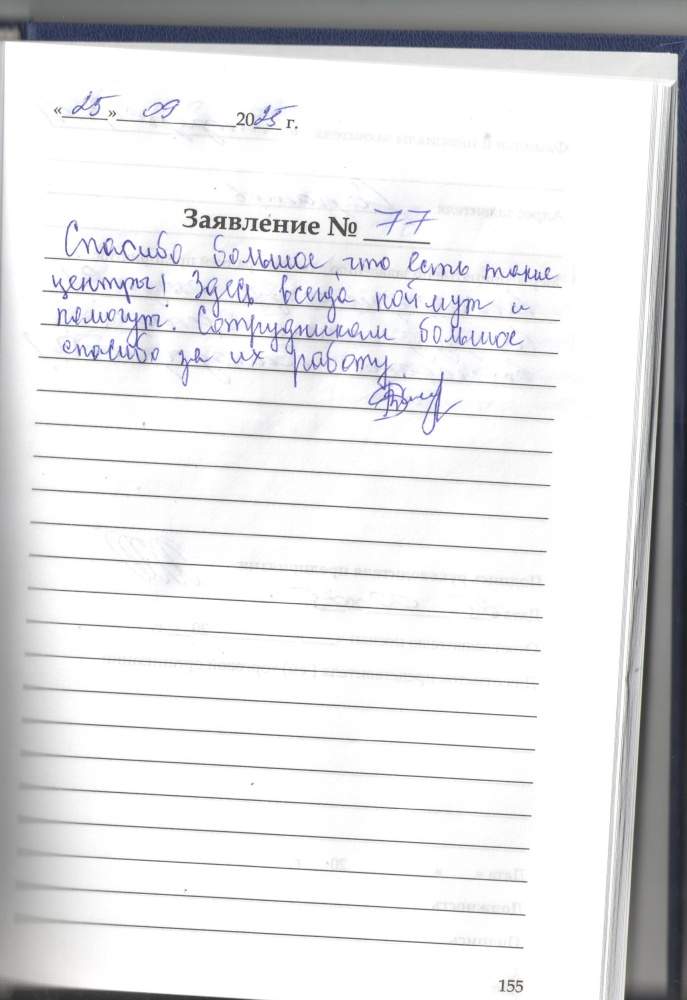 «25» 09 2025 г.
Заявление № 77
Спасибо большое, что есть такие
центры! Здесь всегда поймут и
помогут. Сотрудникам большое
спасибо за их работу.
155